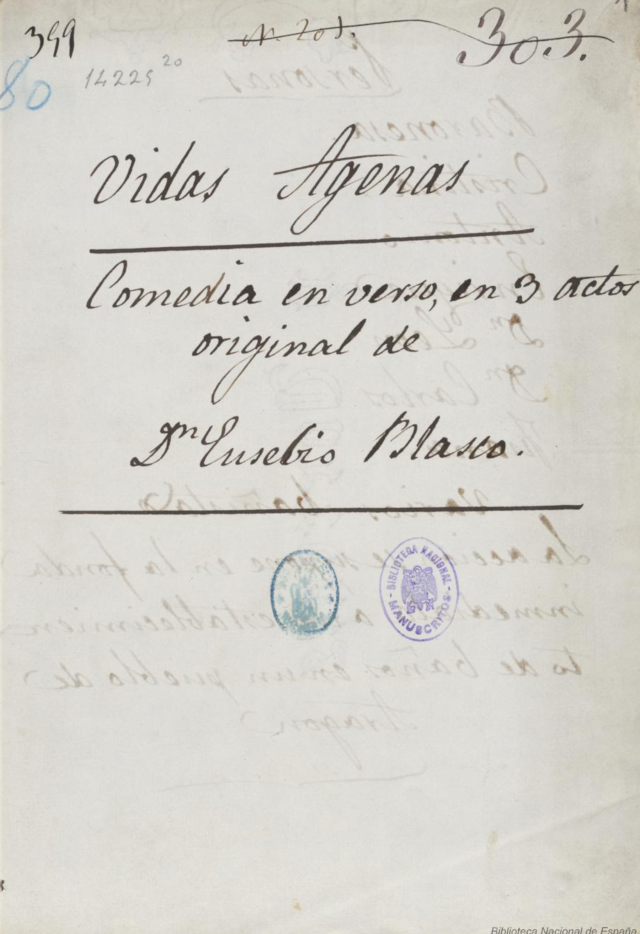 399
N. 201.
303.
80
14225 20
Vidas Agenas
Comedia en verso, en 3 actos
original de
Dⁿ Eusebio Blasco.
BIBLIOTECA NACIONAL
MANUSCRITOS
Biblioteca Nacional de España